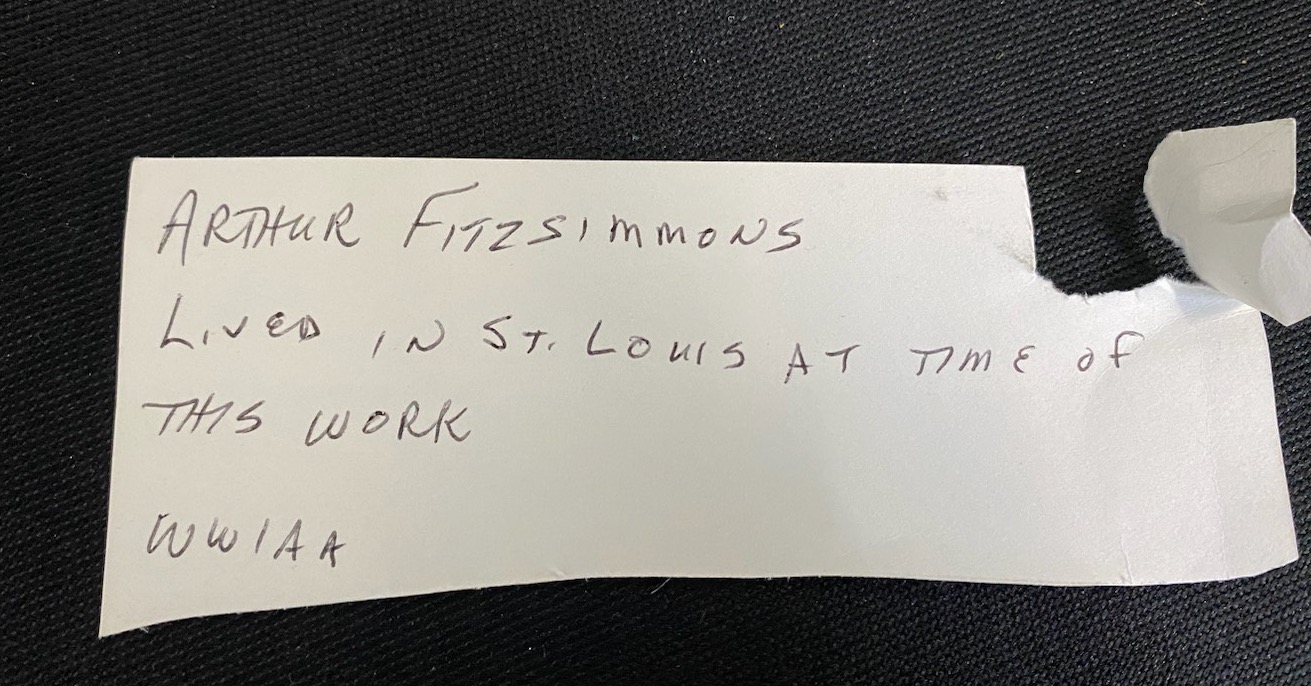 ARTHUR FITZSIMMONS
LIVED IN ST. LOUIS AT TIME OF
THIS WORK
WWIAA